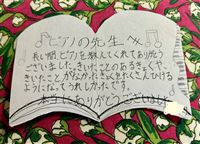 ピアノの先生へ
長い間、ピアノを教えてくれてありがとう
ございました。きいたことのあるきょくや、
きいたことがなかったきょくをたくさんひける
ようになってうれしかったです。
本当にありがとうございました